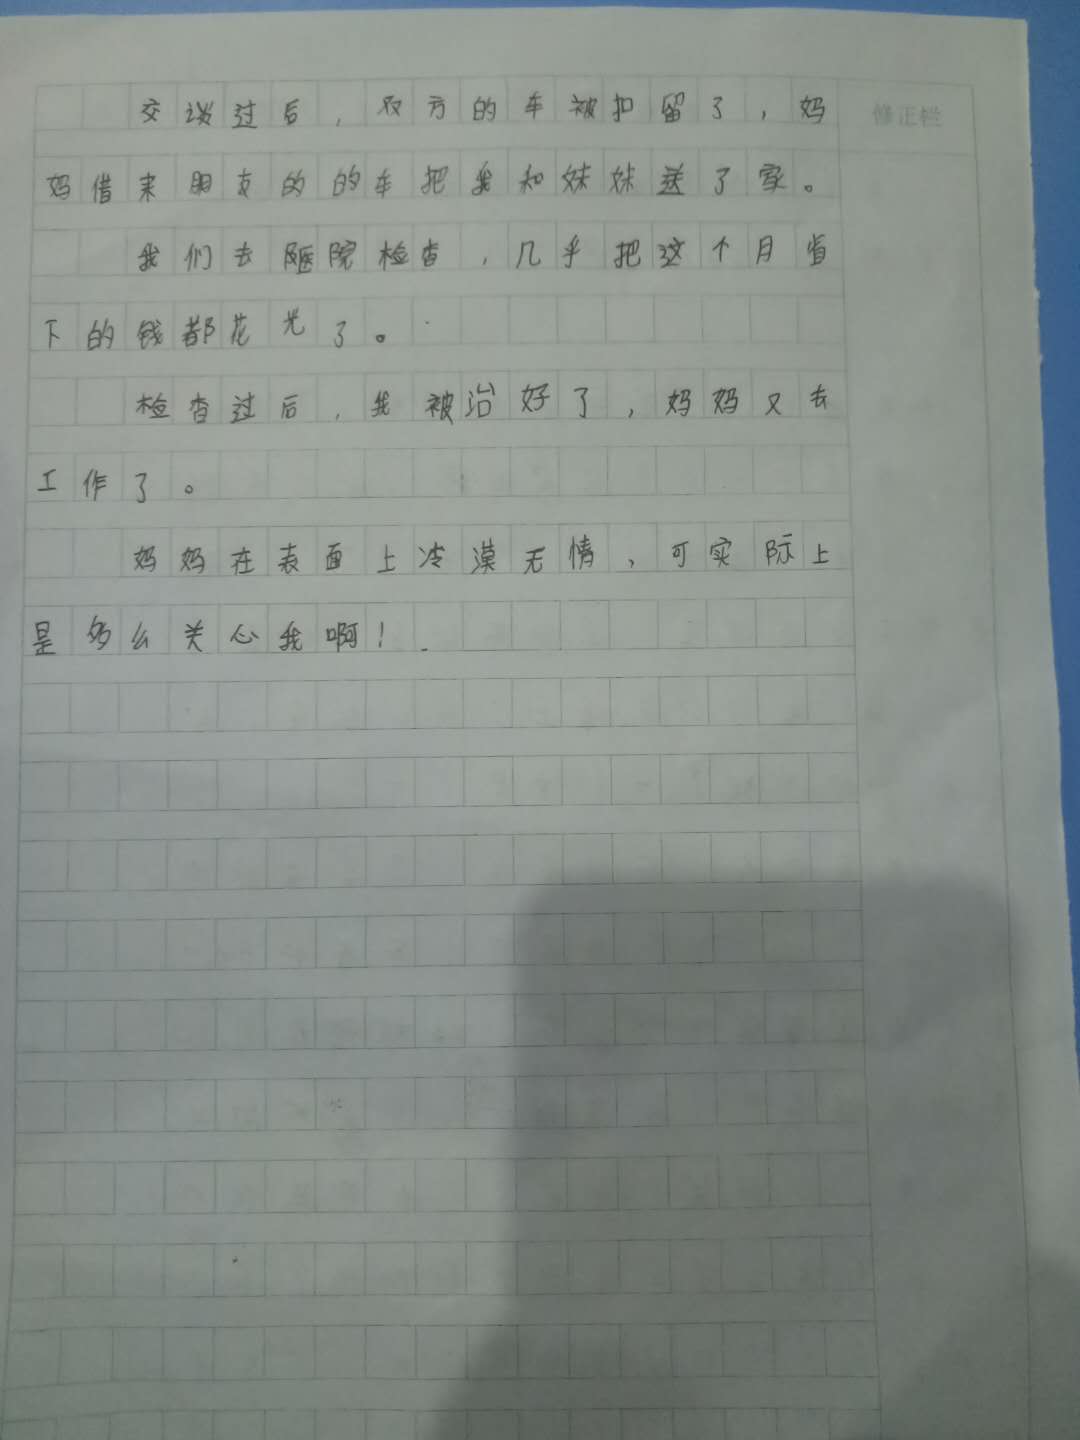 交谈过后，双方的车被扣留了，妈
修正栏
妈借来朋友的的车把我和妹妹送了家。
我们去医院检查，几乎把这个月省
下的钱都花光了。
检查过后，我被治好了，妈妈又去
工作了。
妈妈在表面上冷漠无情，可实际上
是多么关心我啊！